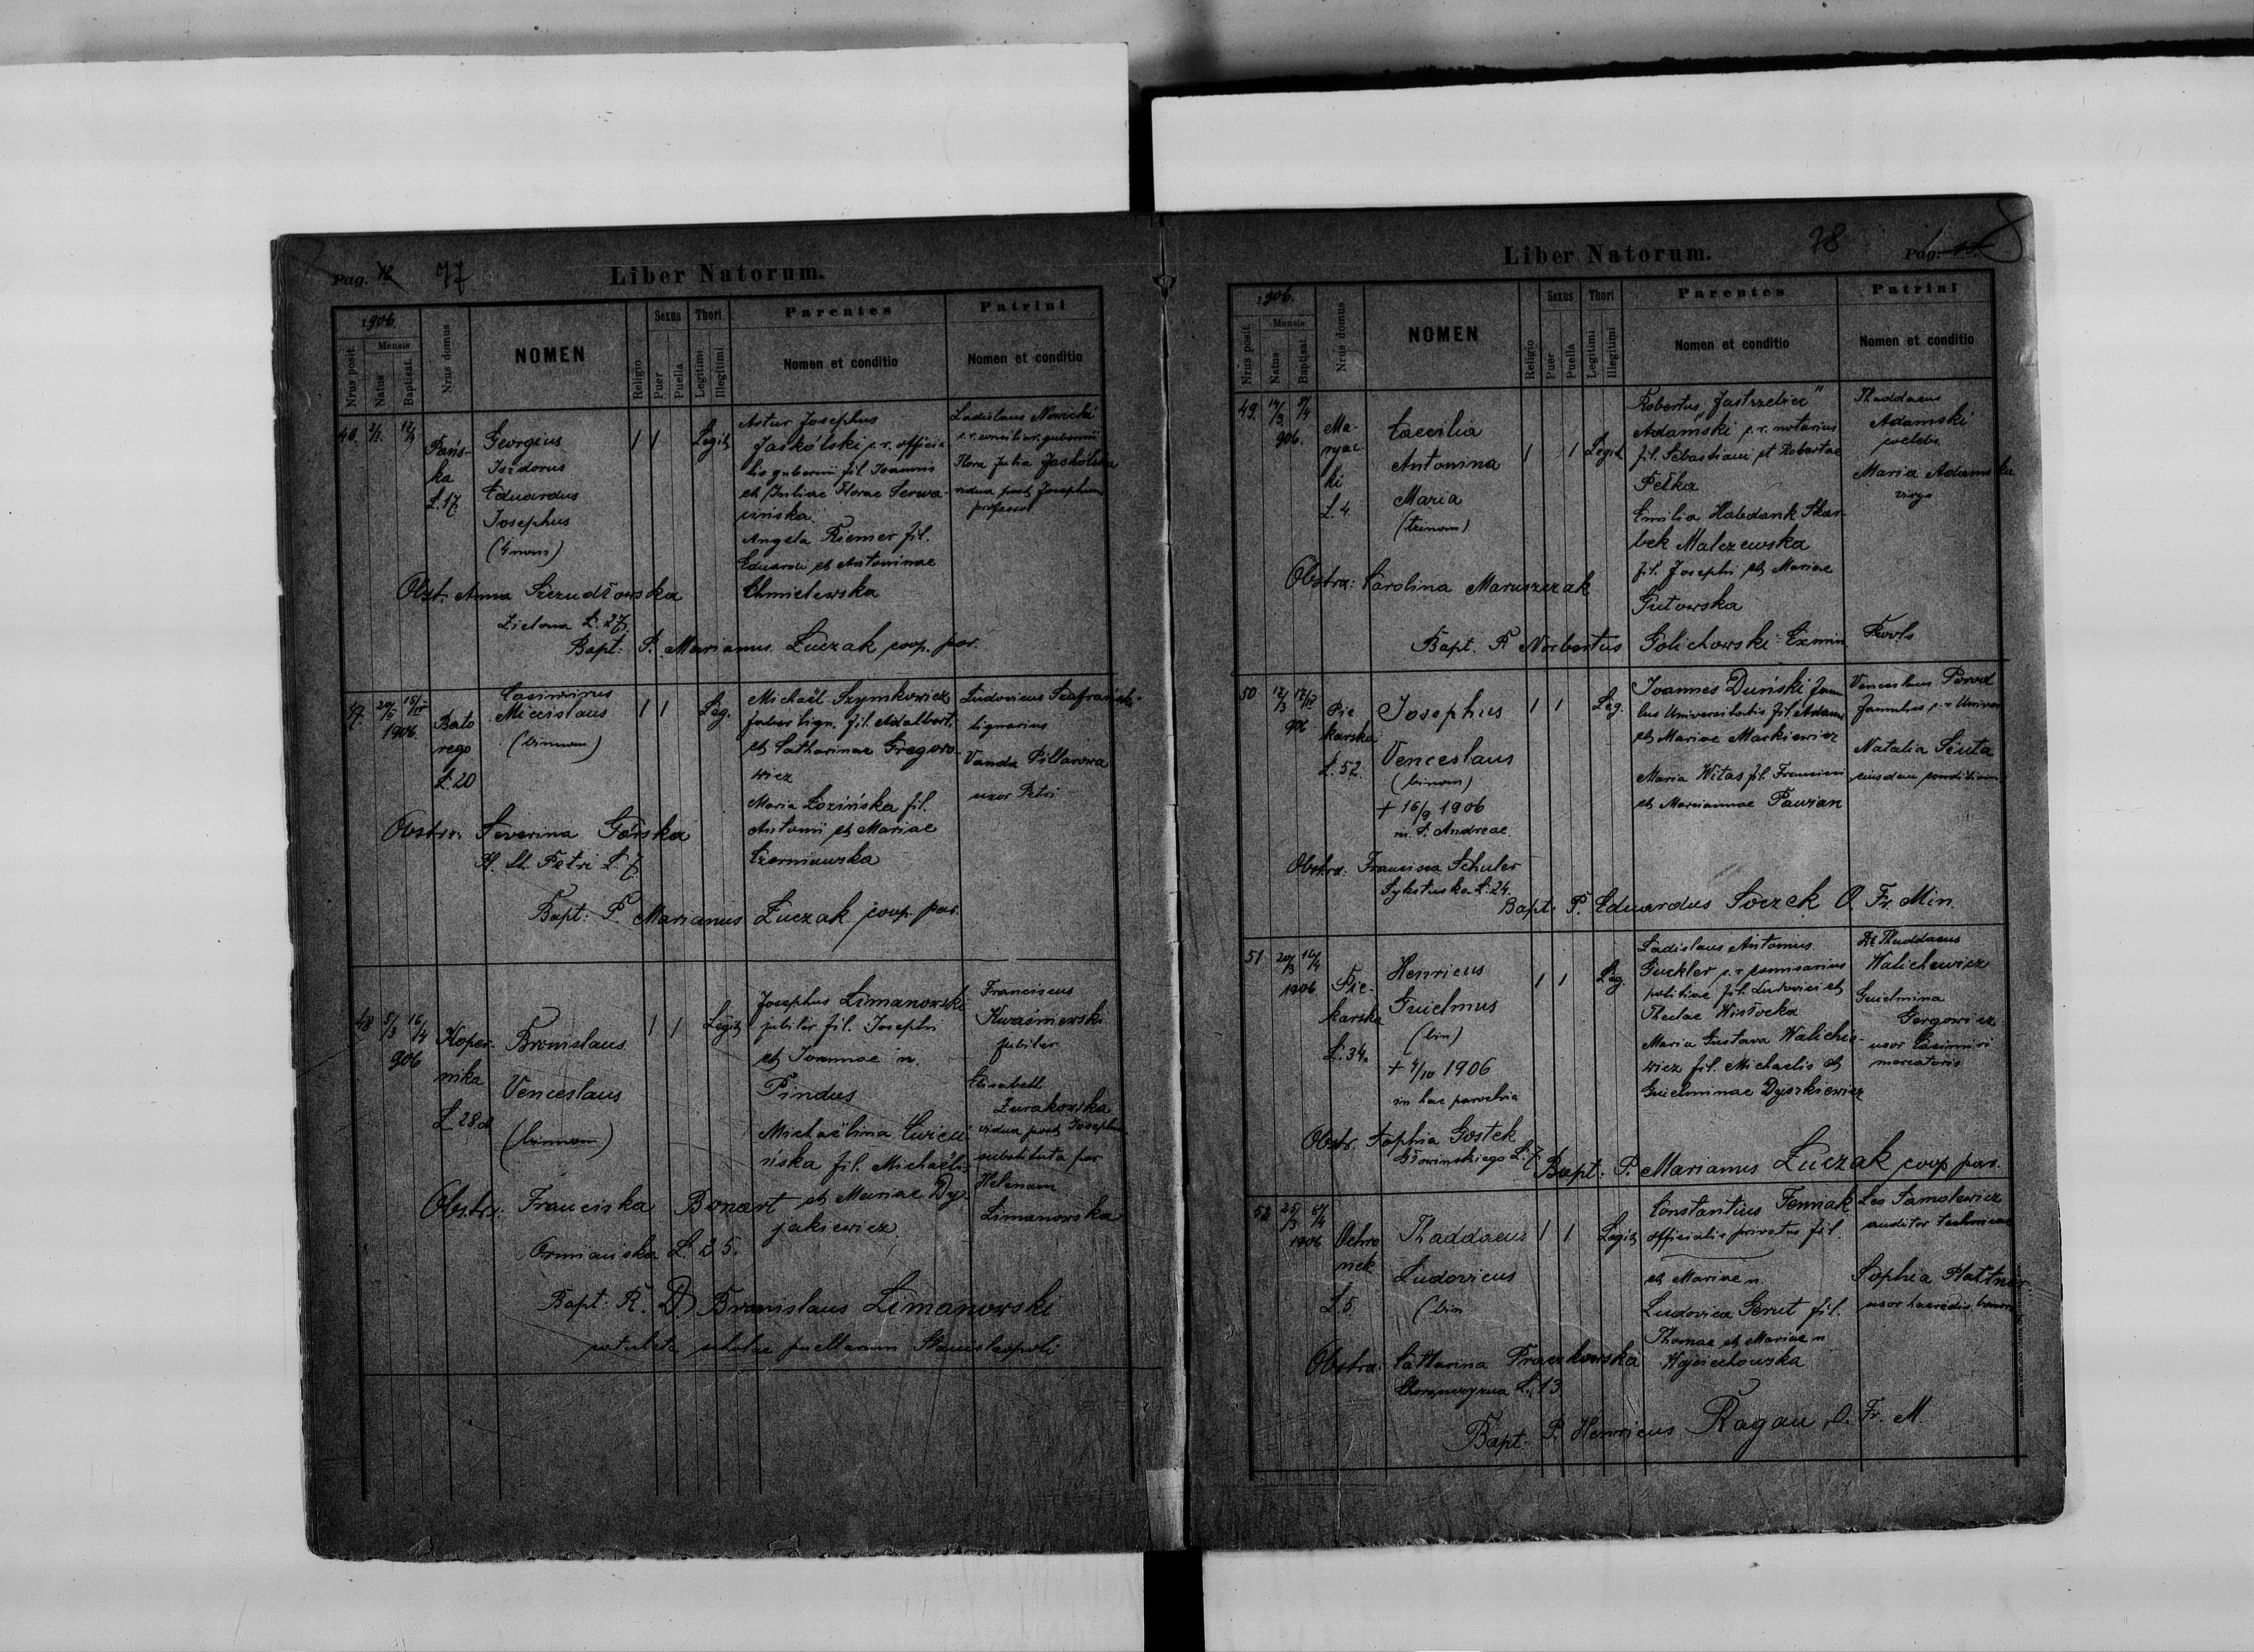 Pag. 12 77
Liber Natorum.
1906
Nrus posit.
Mensis
Natus
Baptisat.
Nrus domus
NOMEN
Religio
Sexus
Puer
Puella
Thori
Legitimi
Illegitimi
Parentes
Nomen et conditio
Patrini
Nomen et conditio
46.
Pańs-
ka
L. 17
Georgius
Isidorus
Eduardus
Josephus
(4 nom)
1 1 Legit
Artur Josephus
Jaskólski c. r. officia
lis gubernii fil. Joannis
et Juliae Florae Serwa-
Angela Riemer fil.
Eduardi et Antoninae
Chmielewska
Ladislaus Nowicki
c. r. consiliar. gubernii
Flora Julia Jaskólska
vidua post Josephum
professor
Obst. Anna Szczudłowska
Zielona L. 27.
Bapt: P. Marianus Łuczak coop. par.
47.
1906.
Bato
rego
L. 20
Casimirus
Miecislaus
(binom)
1 1 Leg.
Michaël Szymkowicz
faber lign. fil. Adalbert.
et Catharinae Gregoro-
wicz
Maria Łozińska fil.
Antonii et Mariae
Czerniawska
Ludovicus
lignarius
Vanda Pillarowa
uxor Petri
Obstrx: Severina Górska
Pl. St. Petri L. 7.
Bapt: P. Marianus Łuczak coop. par.
48 5/3 16/4
906
Koper-
nika
L. 28 d
Bronislaus
Venceslaus
(binom)
1 1 Legit
Josephus Limanowski
jubiler fil. Josephi
et Joannae n.
Pindus
Michaëlina
ńska fil. Michaëli
et Mariae Dy-
jakiewicz
Franciscus
Kwaśniewski
jubiler
Elisabeth
Żurakowska
vidua post Josephum
substituta par
Helenam
Limanowska
Obstrx: Franciska Bonart
Ormiańska L. 25.
Bapt: R. D. Bronislaus Limanowski
catecheta scholae puellarum Stanislaopoli
78
Pag. 13.
Liber Natorum.
1906.
Nrus posit.
Mensis
Natus
Baptisat.
Nrus domus
NOMEN
Religio
Sexus
Puer
Puella
Thori
Legitimi
Illegitimi
Parentes
Nomen et conditio
Patrini
Nomen et conditio
49. 14/3 8/4
906.
Ma-
ryac
ki
L. 4.
Caecilia
Antonina
Maria
(trinom)
1 1 Legit
Robertus "Jastrzębiec"
Adamski c. r. notarius
fil. Sebastiani et Robertae
Pełka
Emilia Habdank Skar-
bek Malczewska
fil. Josephi et Mariae
Gutowska
Thaddaeus
Adamski
coelebs
Maria Adamska
virgo
Obstrx: Carolina Maruszczak
Bapt. P. Norbertus Golichowski Exmin
50 12/3
906
Pie
karska
L. 52.
Josephus
Venceslaus
(binom)
+ 16/9 1906
in S. Andreae
1 1 Leg.
Joannes Duński famu
lus Universitatis fil. Adami
et Mariae Markiewicz
Maria Witas fil. Francisci
et Mariannae Pauzan
Venceslaus Porod
famulus c. r. Univer
Natalia Sznta
ejusdem conditionis
Obstrx: Francisca Schuler
Sykstuska L. 24.
Bapt: P. Eduardus Soczek O. Fr. Min.
51 20/3 16/4
1906
Pie-
karska
L. 34.
Henricus
Guielmus
(bin)
+ 4/IV 1906
in hac parochia
1 1 Leg.
Ladislaus Antonius
Guckler c. r. comisarius
politiae fil. Ludovici et
Theclae Wisłocka
Maria Gustava Walichie-
wicz fil. Michaelis et
Guielminae Dyszkiewicz
Dr Thaddaeus
Walichiewicz
Guielmina
Gergowicz
uxor Casimiri
mercatoris
Obstr. Sophia Gostek
Głowinskiego L. 7
Bapt: P. Marianus Łuczak coop par.
52 25/3 8/4
1906
Ochro
nek
L. 5.
Thaddaeus
Ludovicus
(bin
1 1 Legit
Constantius Fenniak
officialis privatus fil.
et Mariae n.
Ludovica Serut fil.
Thomae et Mariae n
Wojciechowska
Leo Samolewicz
auditor technicae
Sophia Plattner
uxor haeredis bonor
Obstrx: Catharina Fraczkowska
Chorąszczyzna L. 13
Bapt: P. Henricus Ragan O. Fr. M.